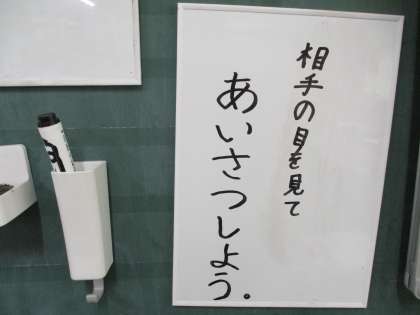 相手の目を見て
あいさつしよう。